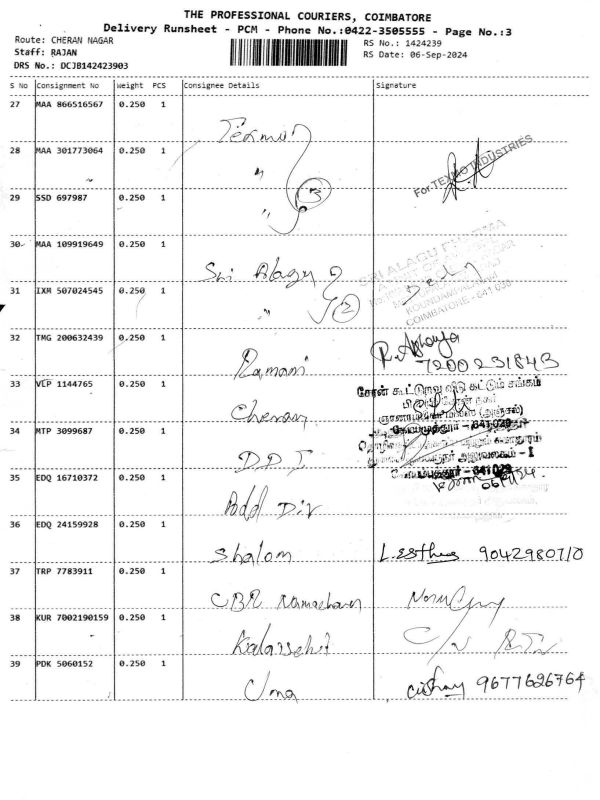 THE PROFESSIONAL COURIERS, COIMBATORE
Delivery Runsheet - PCM - Phone No.:0422-3505555 - Page No.:3
Route: CHERAN NAGAR
RS No.: 1424239
Staff: RAJAN
RS Date: 06-Sep-2024
DRS No.: DCJB142423903
S No Consignment No Weight PCS Consignee Details Signature
27 MAA 866516567 0.250 1 Texmo
28 MAA 301773064 0.250 1 "
For TEXMO INDUSTRIES
29 SSD 697987 0.250 1 " 3
30 MAA 109919649 0.250 1 Sri Alagu
SRI ALAGU PHARMA
31 IXM 507024545 0.250 1 " 2
KOUNDAMPALAYAM
COIMBATORE - 641 030
32 TMG 200632439 0.250 1 Ramani
7200231843
33 VLP 1144765 0.250 1 Cheran
சேரன் கூட்டுறவு வீடு கட்டும் சங்கம்
34 MTP 3099687 0.250 1 D D I
35 EDQ 16710372 0.250 1 Addl Div
36 EDQ 24159928 0.250 1 Shalom
9042980710
37 TRP 7783911 0.250 1 CBR
38 KUR 7002190159 0.250 1
39 PDK 5060152 0.250 1 Uma
9677626764